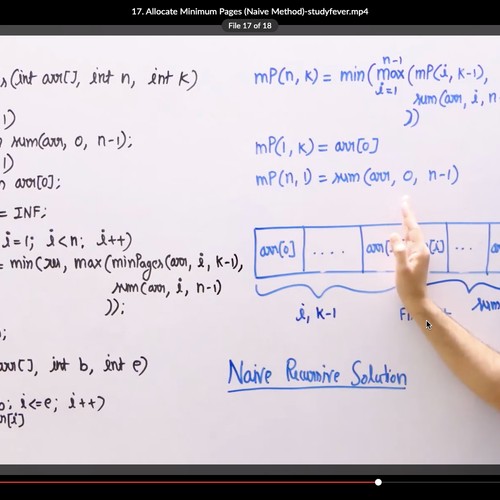 17. Allocate Minimum Pages (Naive Method)-studyfever.mp4
File 17 of 18
(int arr[], int n, int k)
1)
sum(arr, 0, n-1);
1)
arr[0];
= INF;
i=1; i<n; i++)
= min(res, max(minPages(arr, i, k-1),
sum(arr, i, n-1)
));
arr[], int b, int e)
; i<=e; i++)
[i]
mP(n, k) = min(max(mP(i, k-1),
n-1
i=1
sum(arr, i, n-
))
mP(1, k) = arr[0]
mP(n, 1) = sum(arr, 0, n-1)
arr[0] .... arr[ [i] ...
i, k-1
sum
Naive Recursive Solution